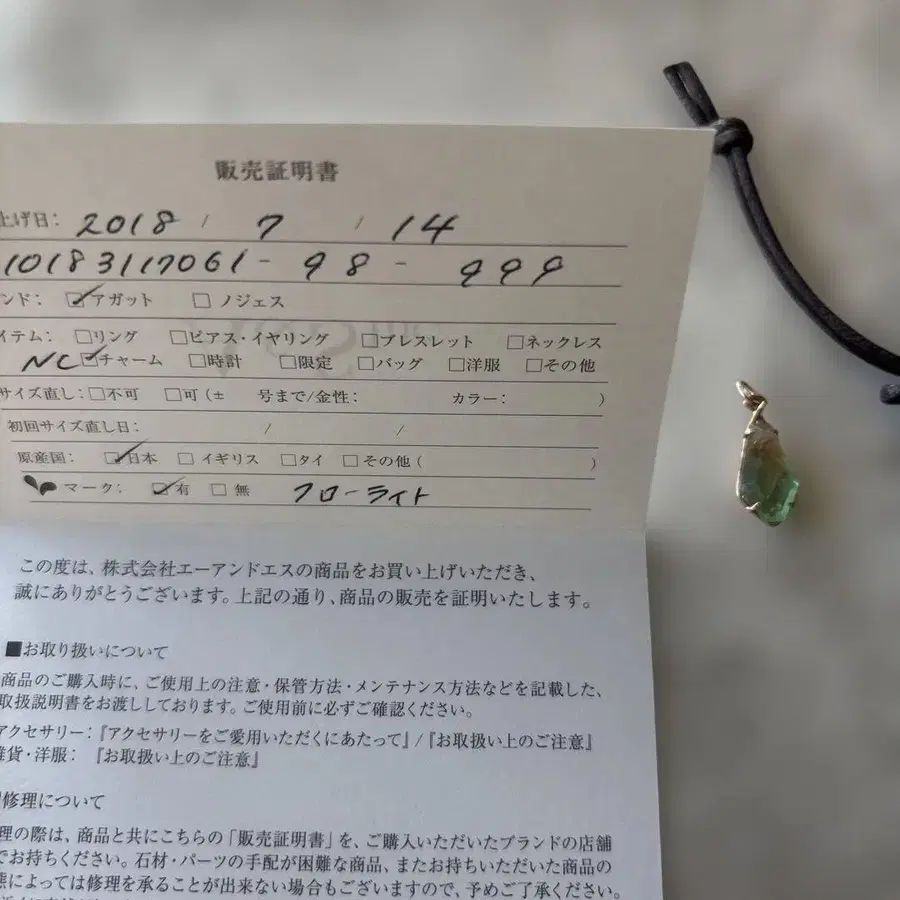 販売証明書
上げ日: 2018 / 7 / 14
10183117061 - 98 - 999
ンド: ☑アガット □ ノジェス
イテム: □リング □ピアス・イヤリング □ブレスレット □ネックレス
NC ☑チャーム □時計 □限定 □バッグ □洋服 □その他
サイズ直し: □不可 □可 (± 号まで/金性: カラー: )
初回サイズ直し日: / /
原産国: ☑日本 □ イギリス □タイ □ その他 ( )
マーク: ☑有 □ 無 フローライト
この度は、株式会社エーアンドエスの商品をお買い上げいただき、
誠にありがとうございます。上記の通り、商品の販売を証明いたします。
■お取り扱いについて
商品のご購入時に、ご使用上の注意・保管方法・メンテナンス方法などを記載した、
取扱説明書をお渡ししております。ご使用前に必ずご確認ください。
アクセサリー:『アクセサリーをご愛用いただくにあたって』/『お取扱い上のご注意』
雑貨・洋服: 『お取扱い上のご注意』
修理について
理の際は、商品と共にこちらの「販売証明書」を、ご購入いただいたブランドの店舗
でお持ちください。石材・パーツの手配が困難な商品、またお持ちいただいた商品の
態によっては修理を承ることが出来ない場合もございますので、予めご了承ください。